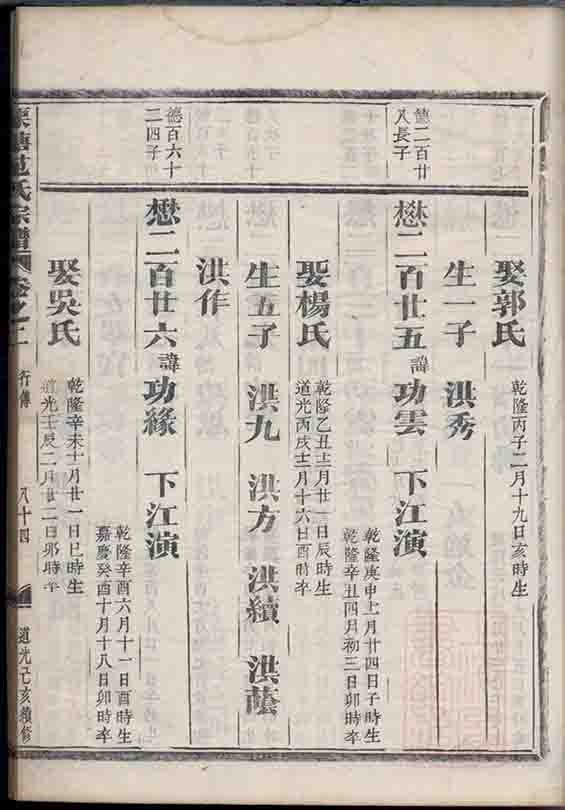 娶郭氏
乾隆丙子二月十九日亥時生
生一子 洪秀
德二百廿
八長子
懋二百廿五 諱功雲 下江演
乾隆庚申月廿四日子時生
乾隆辛丑四月初三日卯時卒
娶楊氏
乾隆乙丑十二月廿一日辰時生
道光丙戌十二月十六日酉時卒
生五子 洪九 洪方 洪續 洪蔭
洪作
德百六十
二四子
懋二百廿六 諱功緣 下江演
乾隆辛酉六月十一日酉時生
嘉慶癸酉十月十八日卯時卒
娶吳氏
乾隆辛未十月廿一日巳時生
道光壬辰二月廿二日卯時卒
塘范氏宗譜 卷之二 行傳 八十四 道光己亥續修